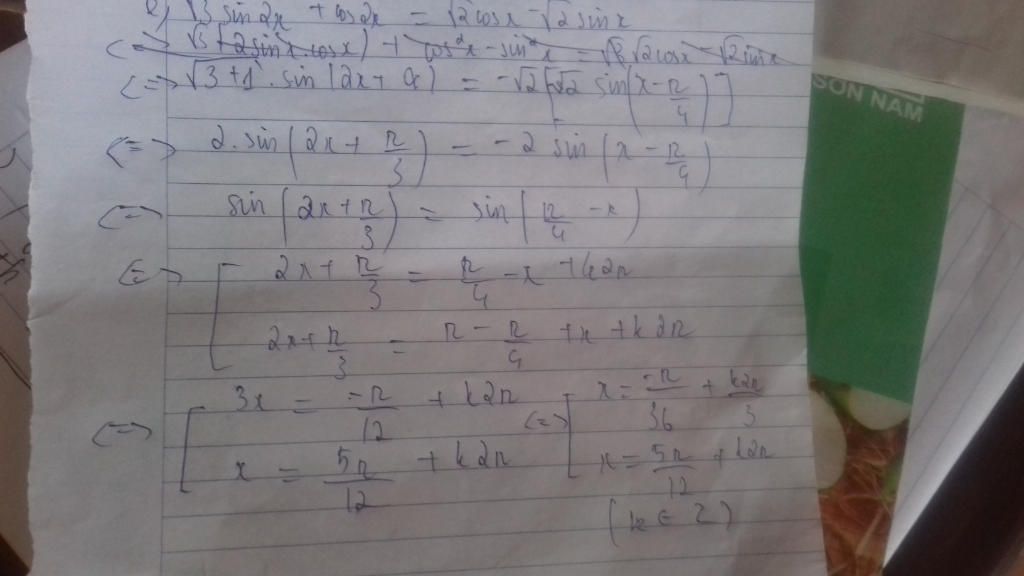 e) √3 sin2x + cos2x = √2cosx - √2sinx
<=> √3 (2sinx cosx) + cos²x - sin²x = √2cosx - √2sinx
<=> √3+1 . sin(2x + α) = -√2[√2 sin(x - π/4)]
<=> 2.sin(2x + π/3) = -2 sin(x - π/4)
<=> sin(2x + π/3) = sin(π/4 - x)
<=> [ 2x + π/3 = π/4 - x + k2π
2x + π/3 = π - π/4 + x + k2π
<=> [ 3x = -π/12 + k2π <=> [ x = -π/36 + k2π/3
x = 5π/12 + k2π x = 5π/12 + k2π
(k ∈ Z)
SON NAM